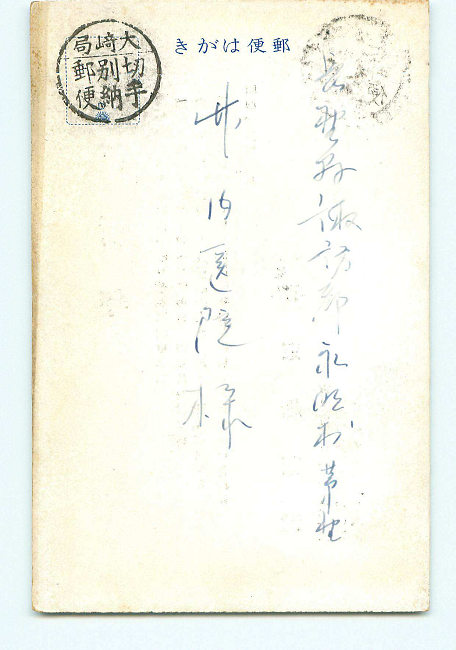 郵便はがき
大崎局
切手
別納
郵便
長野県諏訪郡永明村茅野
竹内医院様